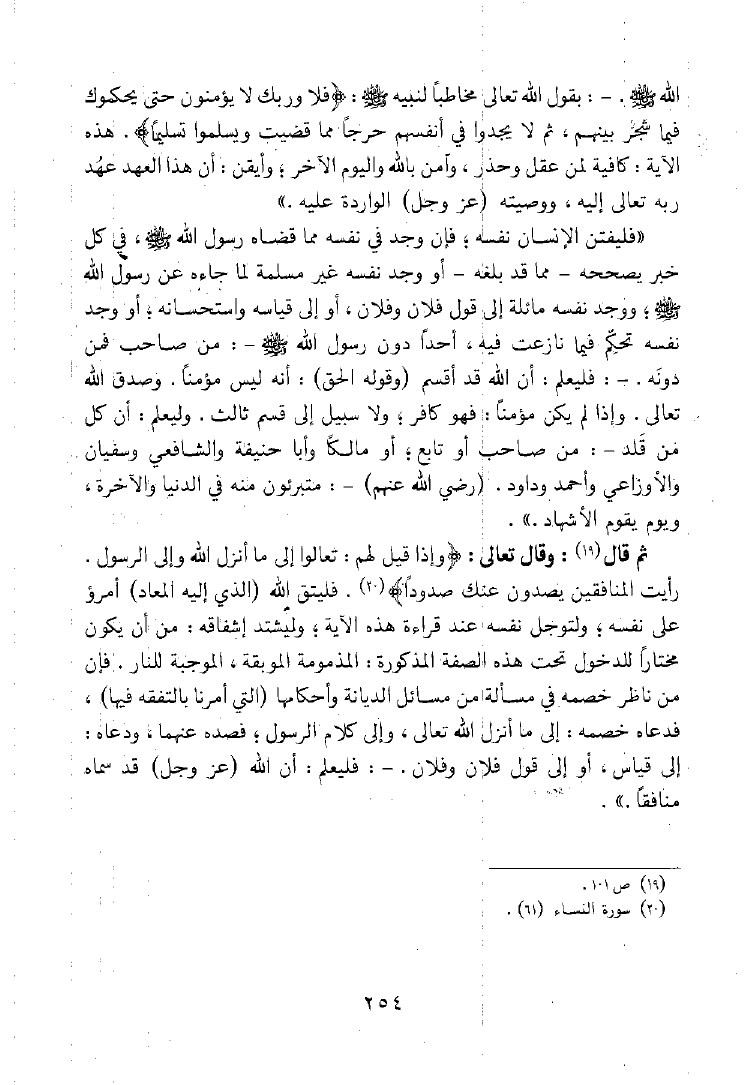 الله ﷺ . - : بقول الله تعالى مخاطباً لنبيه ﷺ : ﴿فلا وربك لا يؤمنون حتى يحكموك
فيما شجر بينهم ، ثم لا يجدوا في أنفسهم حرجاً مما قضيت ويسلموا تسليماً﴾ . هذه
الآية : كافية لمن عقل وحذر ، وآمن بالله واليوم الآخر ؛ وأيقن : أن هذا العهد عهْد
ربه تعالى إليه ، ووصيته (عز وجل) الواردة عليه .»
«فليفتن الإنسان نفسه ؛ فإن وجد في نفسه مما قضاه رسول الله ﷺ ، في كل
خبر يصححه - مما قد بلغه - أو وجد نفسه غير مسلمة لما جاءه عن رسول الله
ﷺ ؛ ووجد نفسه مائلة إلى قول فلان وفلان ، أو إلى قياسه واستحسانه ؛ أو وجد
نفسه تحكِّم فيما نازعت فيه ، أحداً دون رسول الله ﷺ - : من صاحب فمن
دونَه . - : فليعلم : أن الله قد أقسم (وقوله الحق) : أنه ليس مؤمناً . وصدق الله
تعالى . وإذا لم يكن مؤمناً : فهو كافر ؛ ولا سبيل إلى قسم ثالث . وليعلم : أن كل
مَن قَلد - : من صاحب أو تابع ؛ أو مالكًا وأبا حنيفة والشافعي وسفيان
والأوزاعي وأحمد وداود . (رضي الله عنهم) - : متبرئون منه في الدنيا والآخرة ،
ويوم يقوم الأشهاد .» .
ثم قال (١٩) : وقال تعالى : ﴿وإذا قيل لهم : تعالوا إلى ما أنزل الله وإلى الرسول .
رأيت المنافقين يصدون عنك صدوداً﴾ (٢٠) . فليتق الله (الذي إليه المعاد) أمرؤ
على نفسه ؛ ولتوجل نفسه عند قراءة هذه الآية ؛ وليشتد إشفاقه : من أن يكون
مختاراً للدخول تحت هذه الصفة المذكورة : المذمومة الموبقة ، الموجبة للنار . فإن
من ناظر خصمه في مسألة من مسائل الديانة وأحكامها (التي أمرنا بالتفقه فيها) ،
فدعاه خصمه : إلى ما أنزل الله تعالى ، وإلى كلام الرسول ؛ فصده عنهما ، ودعاه :
إلى قياس ، أو إلى قول فلان وفلان . - : فليعلم : أن الله (عز وجل) قد سماه
منافقاً .» .
(١٩) ص ١٠١ .
(٢٠) سورة النساء (٦١) .
٢٥٤